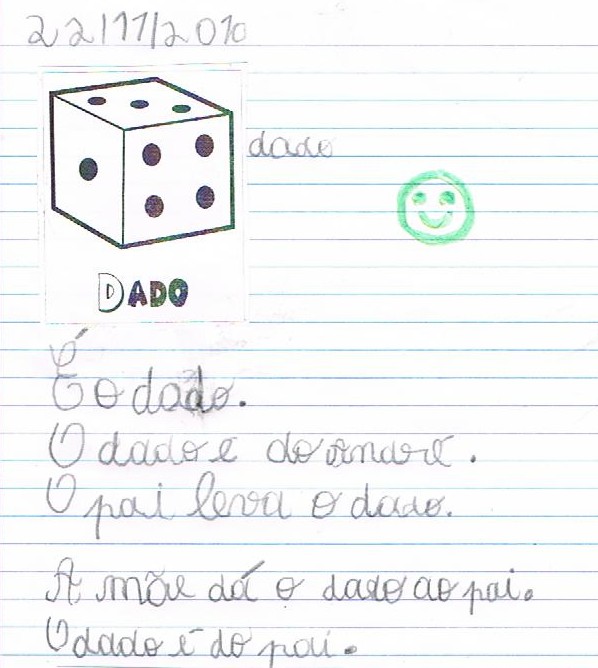 22/11/2010
dado
DADO
É o dado.
O dado e do andré.
O pai leva o dado.
A mãe dá o dado ao pai.
O dado é do pai.